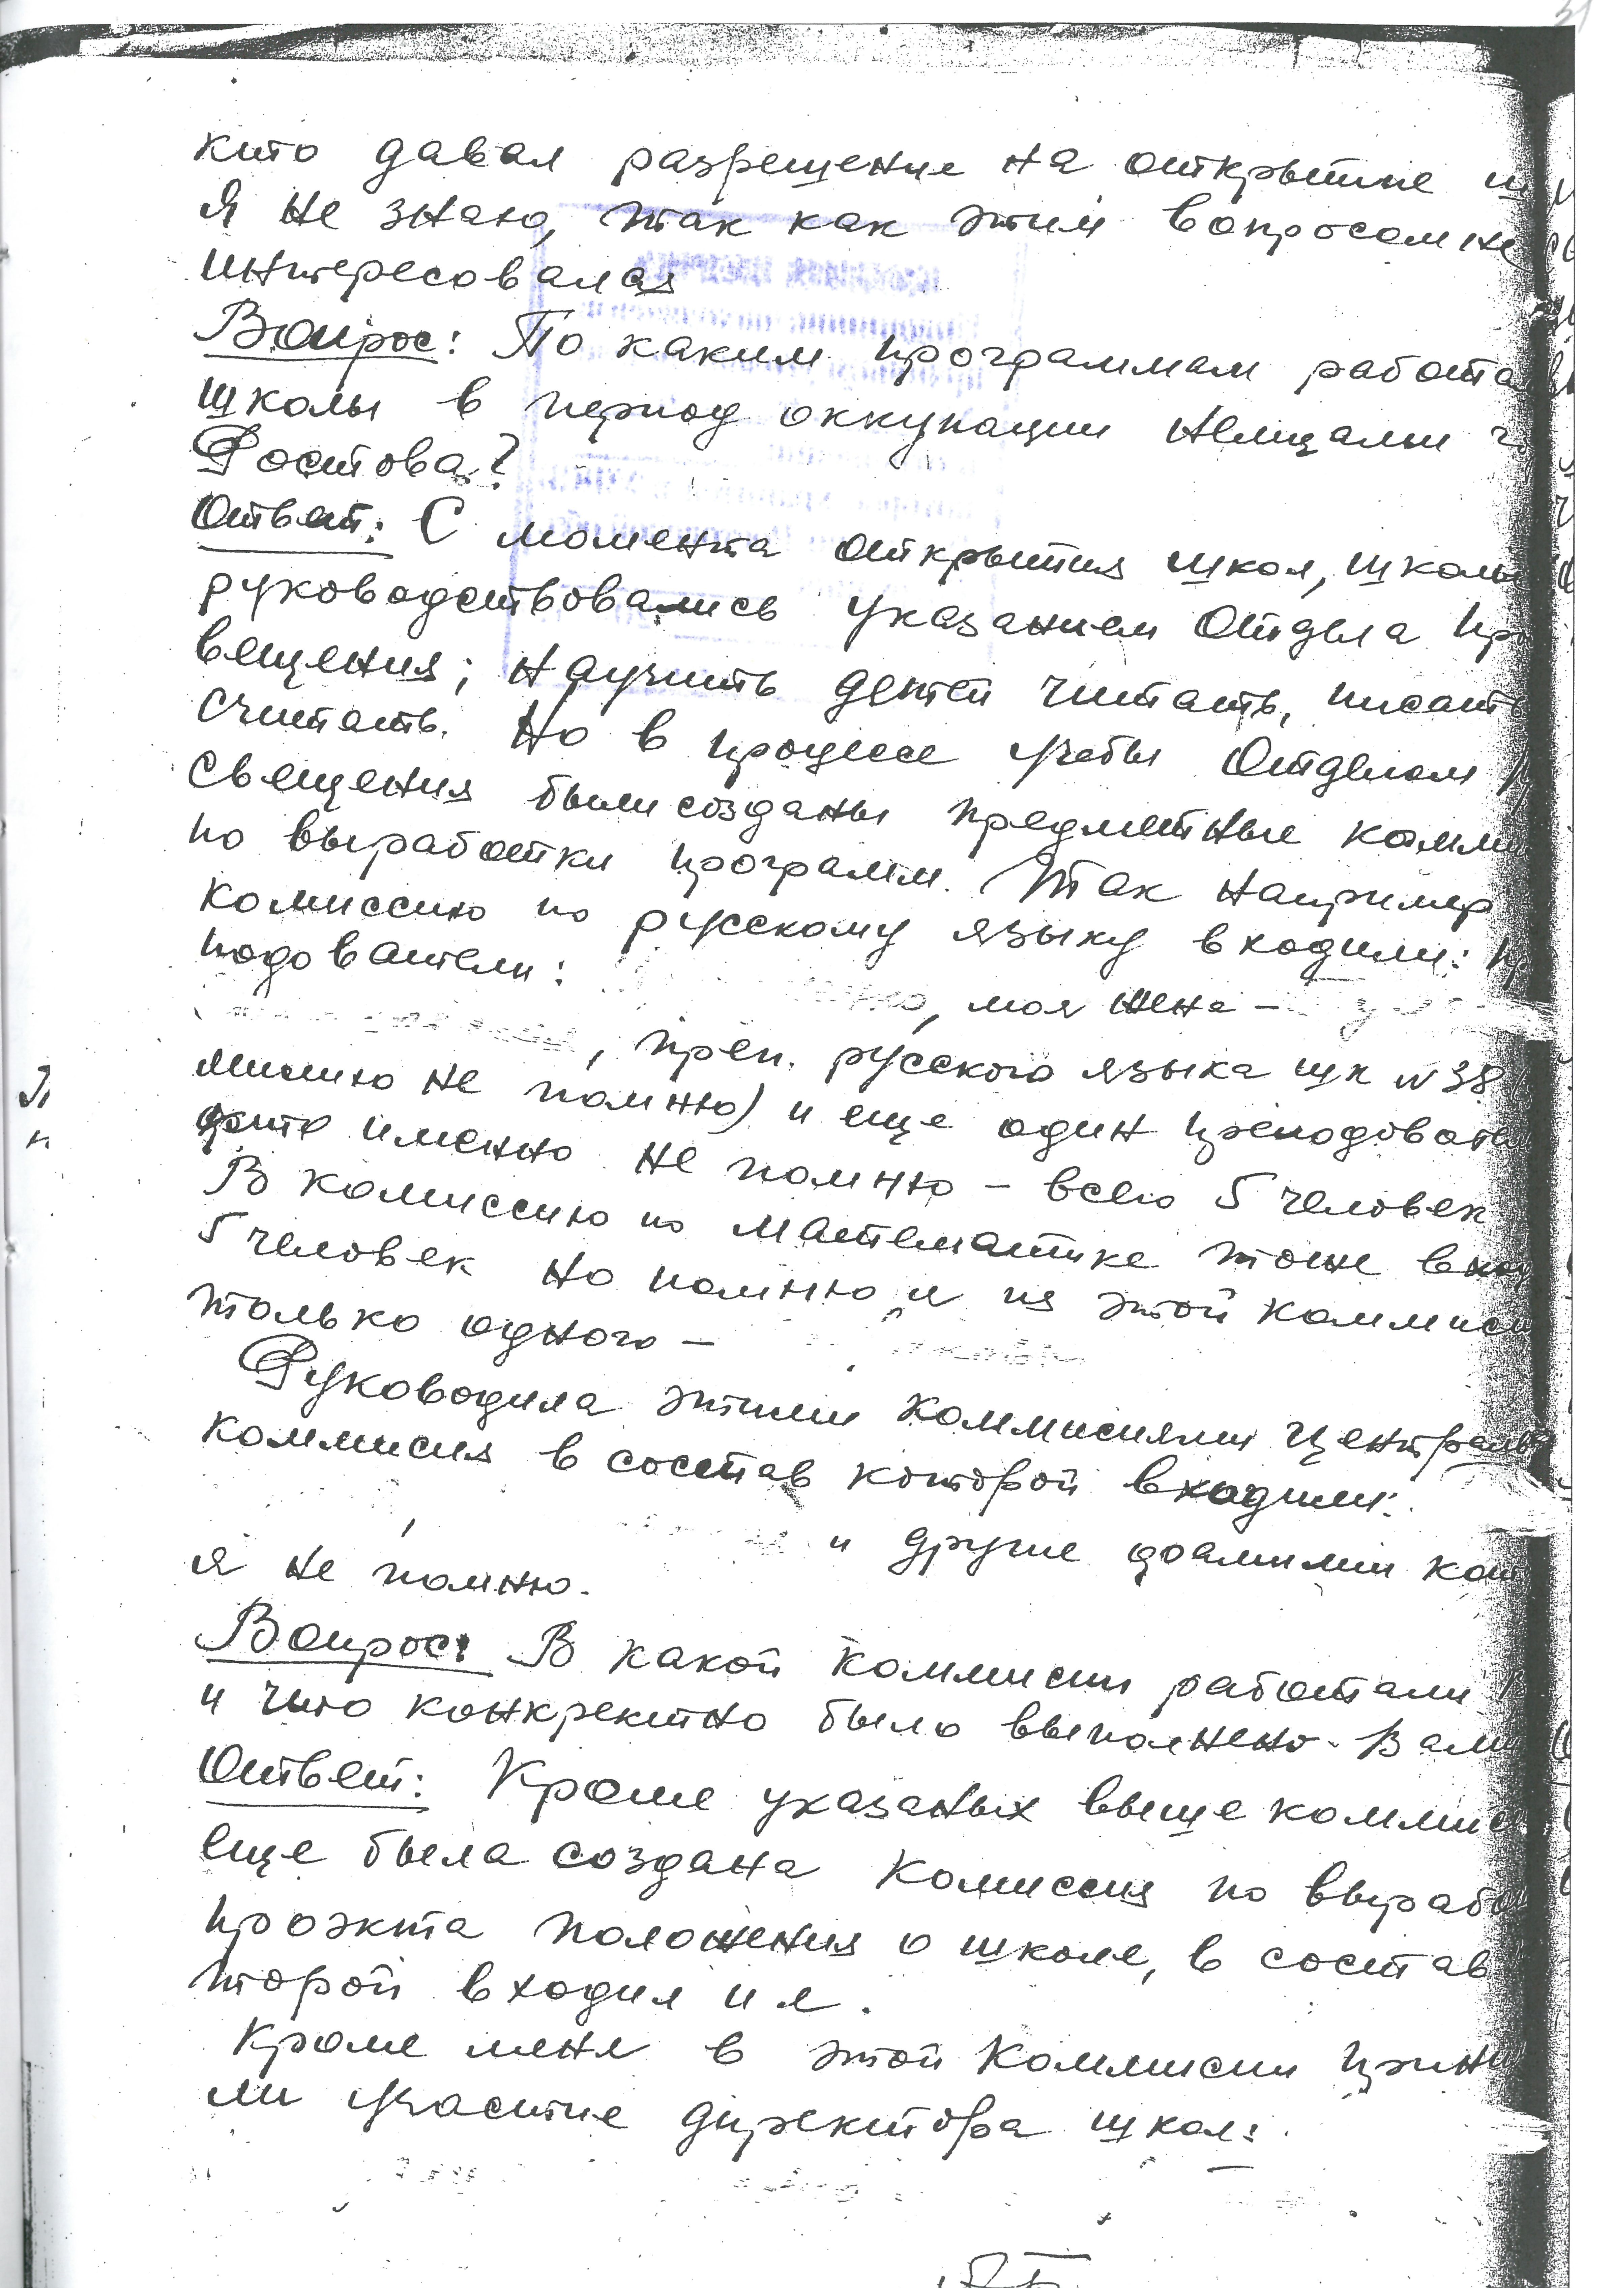 кто давал разрешение на открытие ш
Я не знаю, так как этим вопросом не
интересовался
Вопрос: По каким программам работа
школы в период оккупации немцами г.
Ростова?
Ответ: С момента открытия школ, школы
руководствовались указанием Отдела Про
вещения; научить детей читать, писать
считать. Но в процессе учебы Отделом
свещения были созданы предметные комми
по выработки программ. Так например
комиссию по русскому языку входили:
подователи:
, моя жена –
, преп. русского языка шк N 38
милию не помню) и еще один преподовате
кто именно не помню – всего 5 человек
В комиссию по математике тоже вход
5 человек но помню я из этой коммиси
только одного –
Руководила этими коммисиями централь
коммисия в состав которой входили:
и другие фамилии кот
я не помню.
Вопрос: В какой коммисии работали
и что конкретно было выполнено Вами
Ответ: Кроме указаных выше коммис
еще была создана комиссия по вырабо
проэкта положения о школе, в состав
торой входил и я.
Кроме меня в этой коммисии прини
ли участие директора школ: